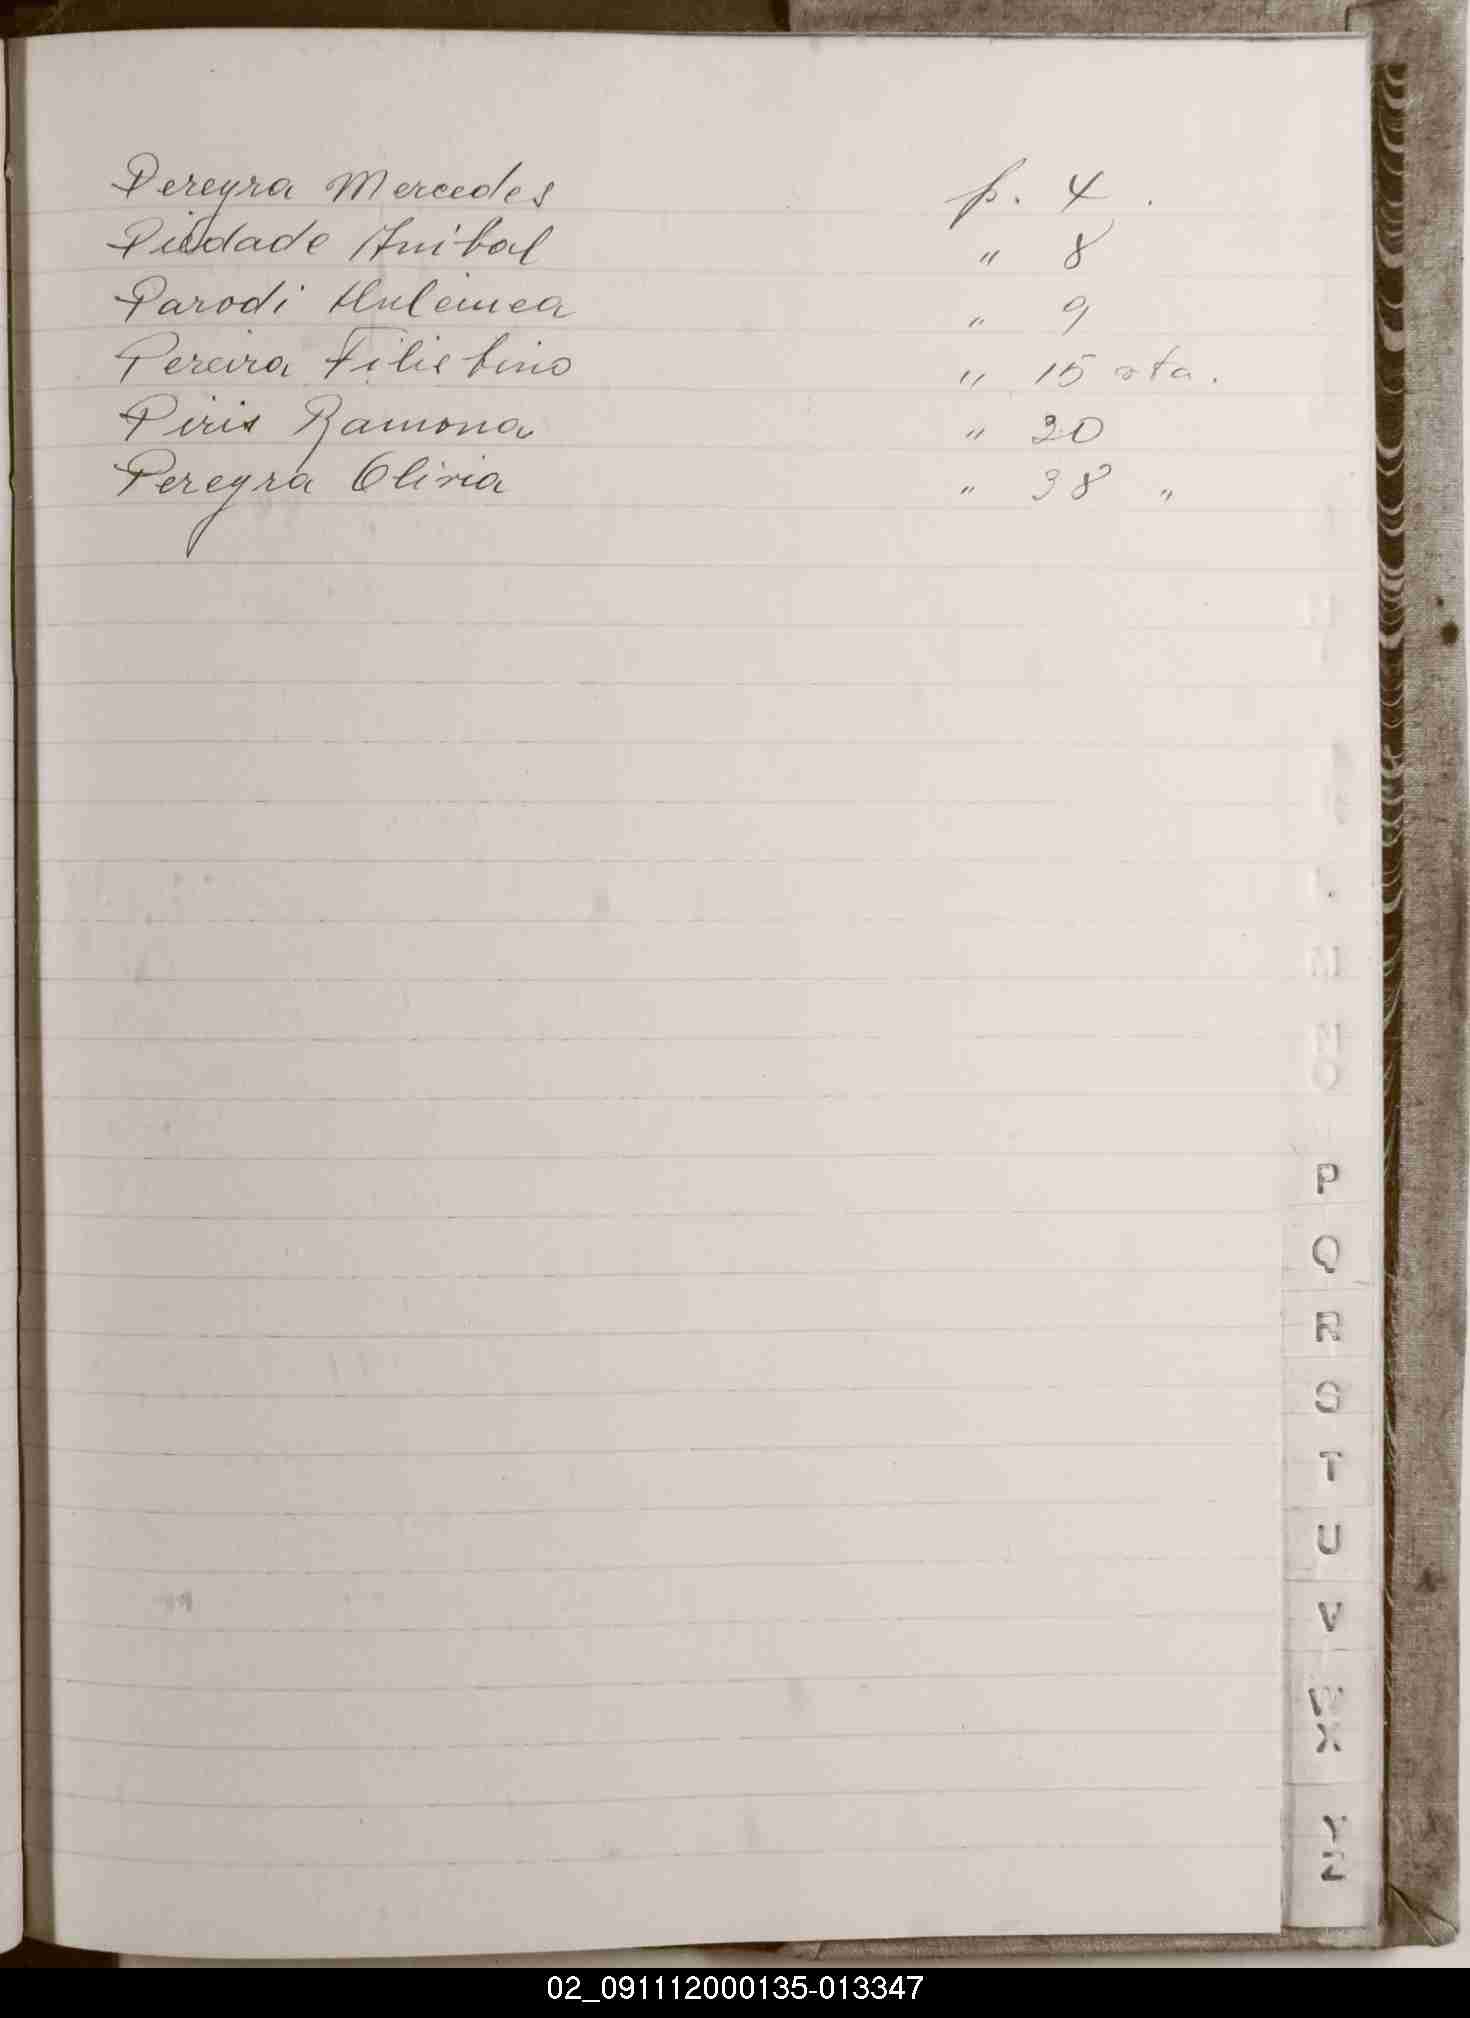 Pereyra Mercedes p. 4.
Piedade Anibal " 8
Parodi " 9
Pereira Filistino " 15 vta.
Piris Ramona " 20
Pereyra Olivia " 38 "
P
Q
R
S
T
U
V
W
X
Y
Z
02_091112000135-013347